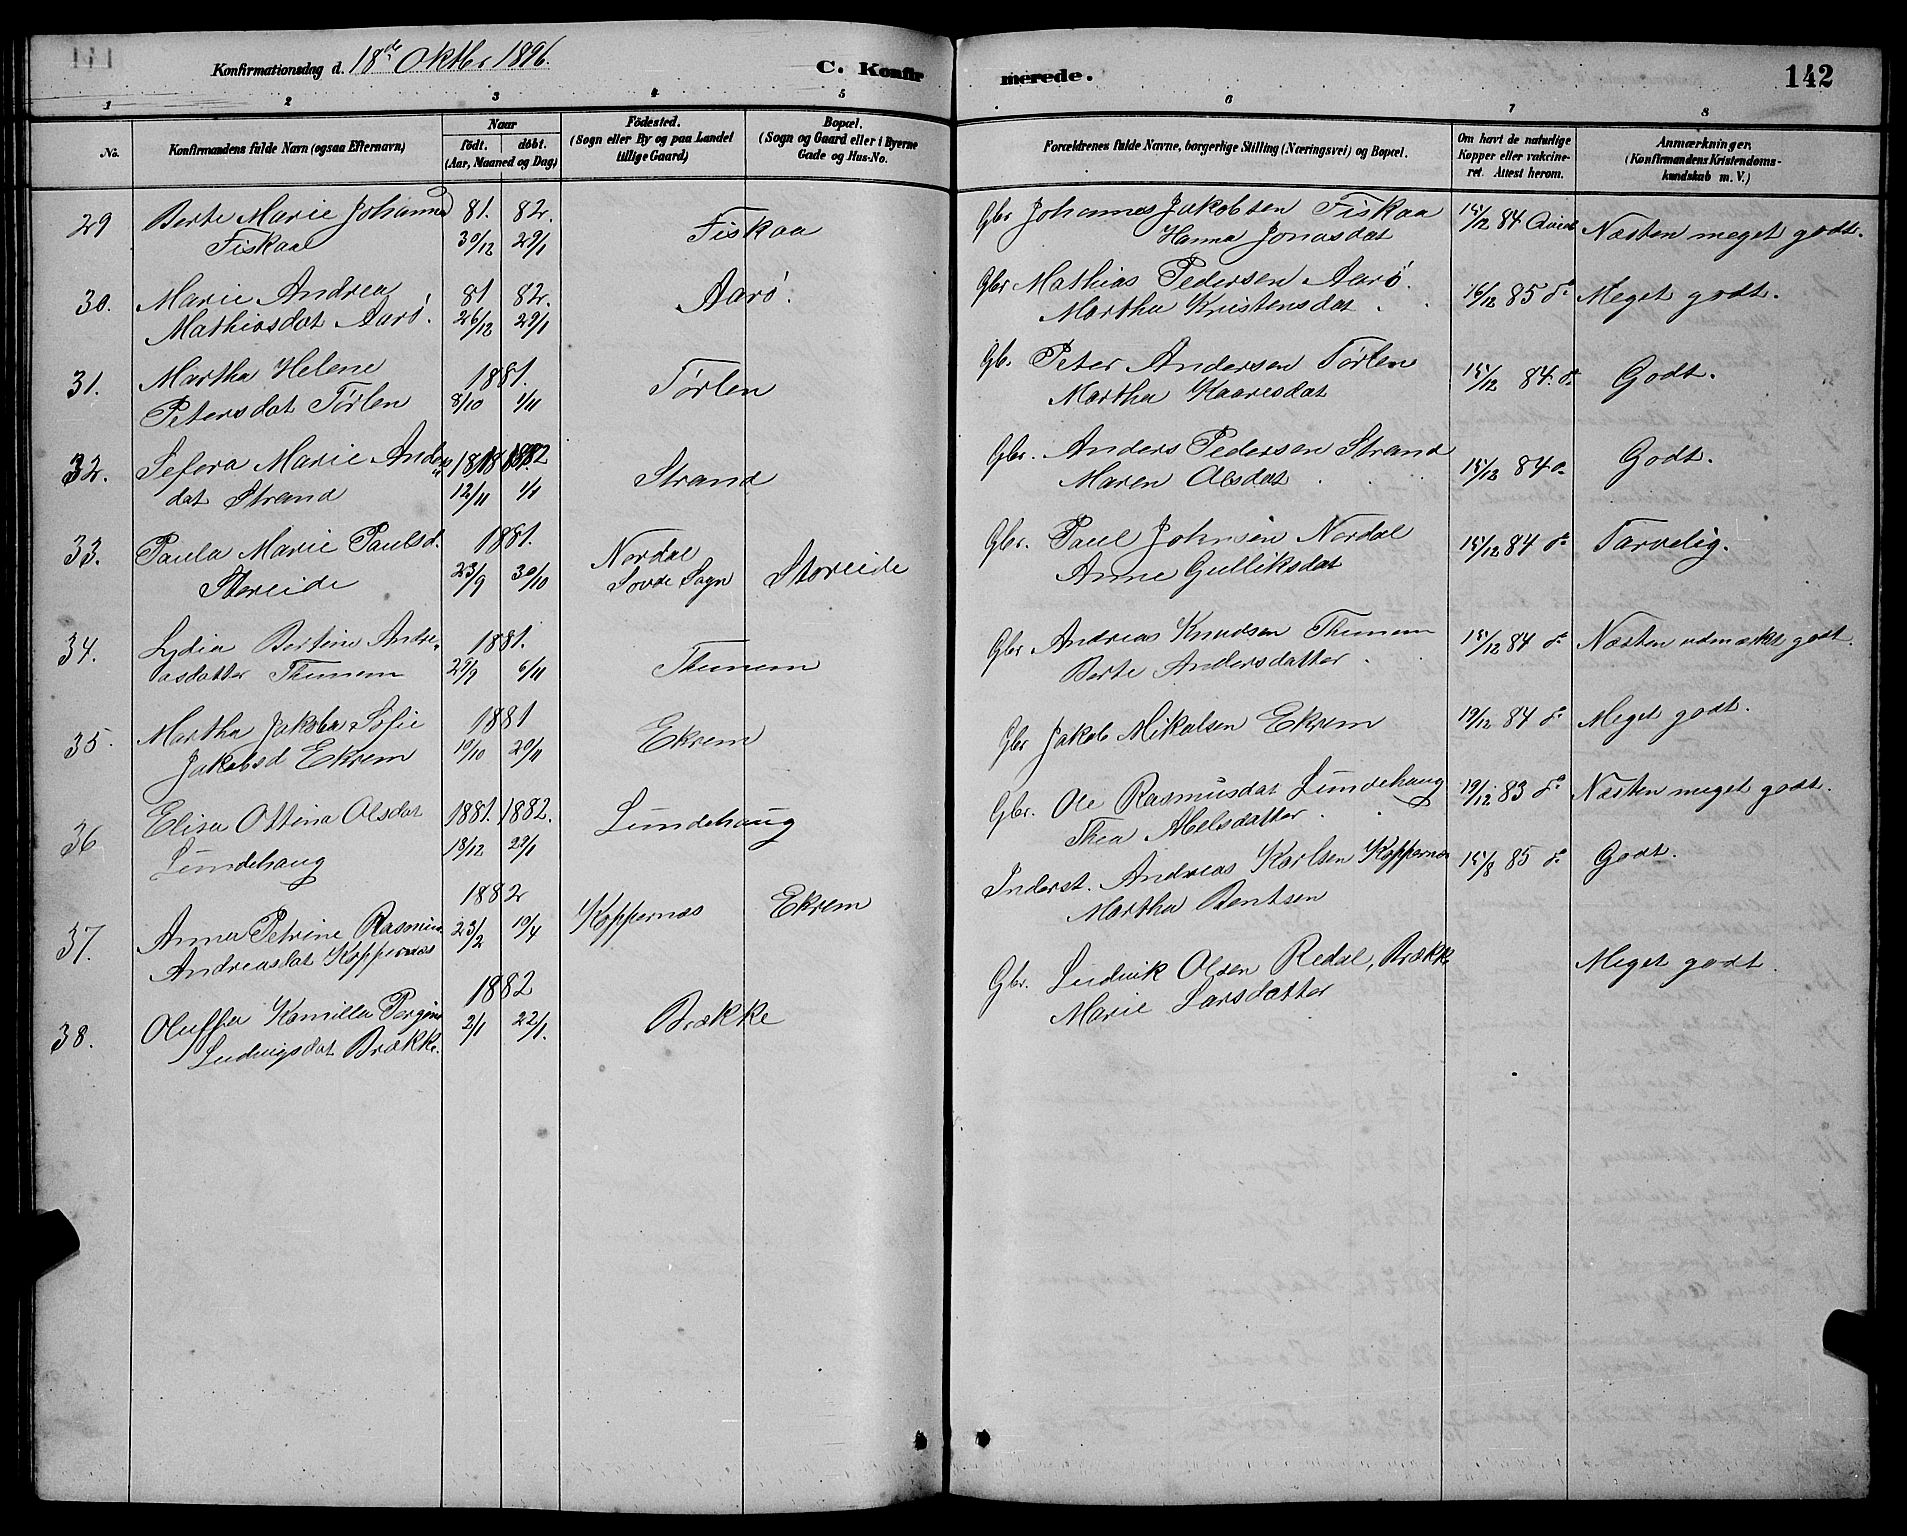 Konfirmationsdag d. 18de Oktbr 1896.
C. Konfirmerede.
142
1 2 3 4 5 6 7 8
No.
Konfirmandens fulde Navn (ogsaa Efternavn)
Naar
født. døbt.
(Aar, Maaned og Dag)
Fødested.
(Sogn eller By og paa Landet
tillige Gaard)
Bopæl.
(Sogn og Gaard eller i Byerne
Gade og Hus-No.
Forældrenes fulde Navne, borgerlige Stilling (Næringsvei) og Bopæl.
Om havt de naturlige
Kopper eller vakcine-
ret. Attest herom.
Anmærkninger.
(Konfirmandens Kristendoms-
kundskab m. V.)
29 Berte Marie Johanne 81. 82. Fiskaa Gbr Johannes Jakobsen Fiskaa 15/12 84 Næsten meget godt.
Fiskaa 30/12 29/1 Hanna Jonasdat
30. Marie Andrea 81 82. Aarö. Gbr Mathias Pedersen Aarö. 16/12 85 do Meget godt.
Mathiasdat Aarö. 26/12 29/1 Martha Kristensdat
31. Martha Helene 1881. Törlen Gb. Peter Andersen Törlen 15/12 84. do Godt.
Petersdat Törlen 8/10 1/11 Martha Kaaresdat
32. Sefora Marie Anders 1882 Strand Gbr. Anders Pedersen Strand 15/12 84 do Godt.
dat Strand 12/11 1/1 Maren Olsdat
33. Paula Marie Paulsd. 1881. Nordal Storeide Gbr. Paul Johnsen Nordal 15/12 84 do Tarvelig.
Storeide 23/9 30/10 Sovde Sogn Anne Gulliksdat
34. Lydia Bertine Andre- 1881. Thunem Gbr Andreas Knudsen Thunem 15/12 84 do Næsten udmærket godt.
asdatter Thunem 29/9 6/11 Berte Andersdatter
35. Martha Jakoba Sofie 1881 Ekrem Gbr Jakob Mikalsen Ekrem 19/12 84 do Meget godt.
Jakobsd Ekrem 10/10 20/11
36 Elisa Ottina Olsdat 1881. 1882. Lundehaug Gbr. Ole Rasmusdat Lundehaug 19/12 83 do Næsten meget godt.
Lundehaug 18/12 29/1 Thea Abelsdatter
37. Anna Petrine Rasmine 1882 Koppernæs Ekrem Inderst. Andreas Karlsen Koppernæs 15/8 85 do Godt.
Andreasdat Koppernæs 23/2 10/4 Martha Bentsen
38. Oluffa Kamilla 1882 Brække Gbr. Ludvik Olsen Redal, Brække Meget godt.
Ludvigsdat Brække. 2/1 22/1. Marie Larsdatter